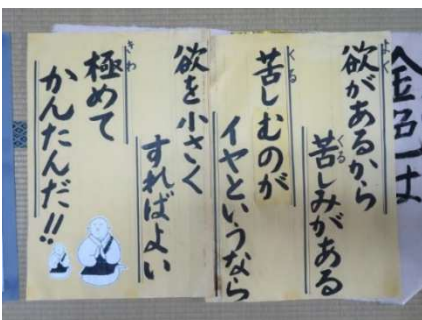 欲があるから
苦しみがある
苦しむのが
イヤというなら
欲を小さく
すればよい
極めて
かんたんだ!!